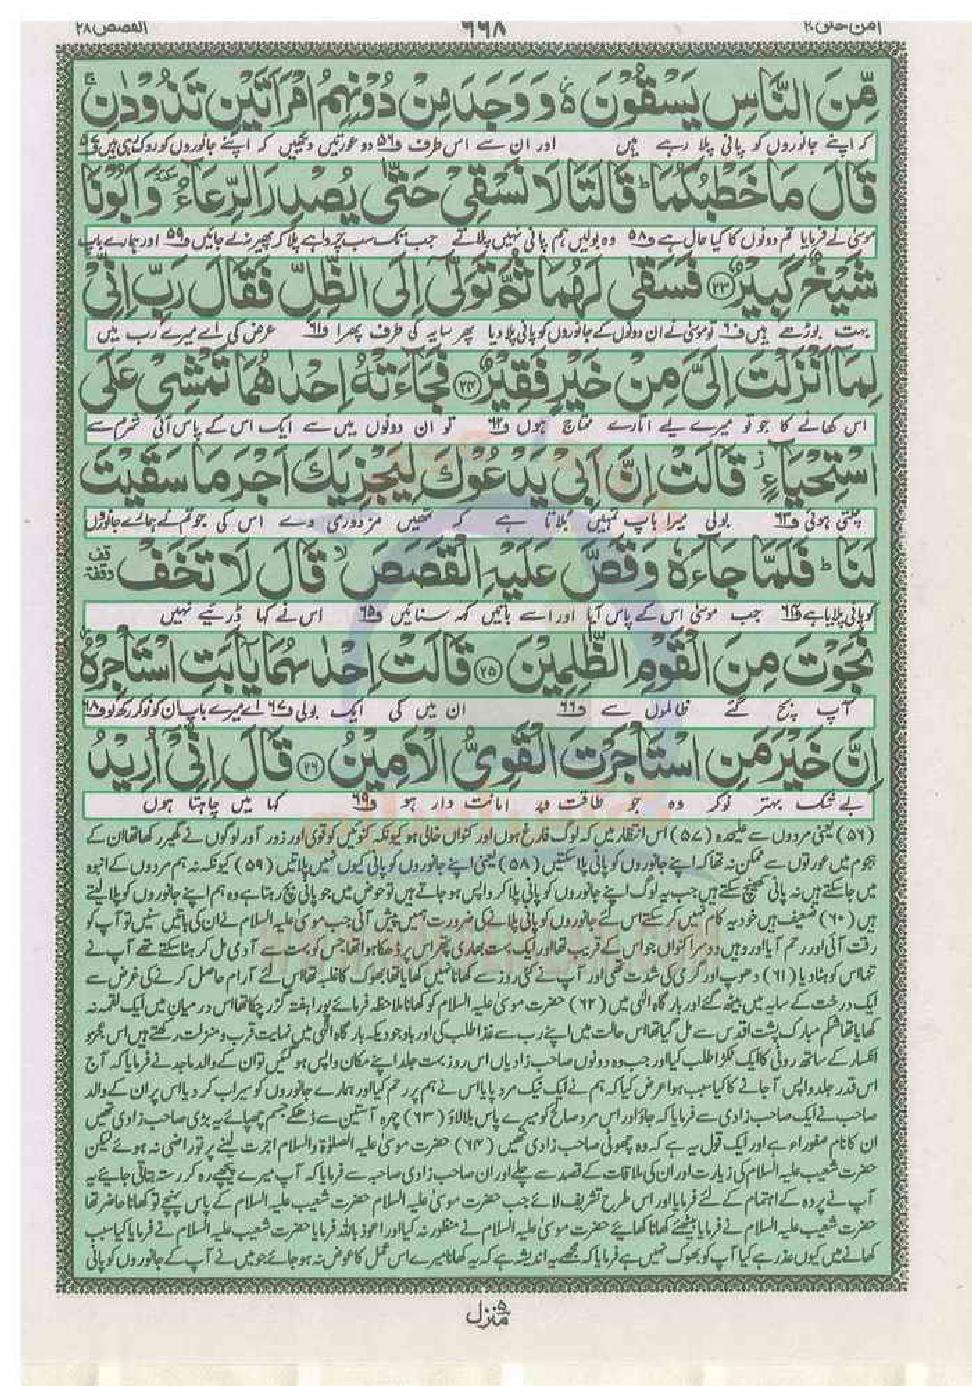 امن خلق ۲۰ ۶۶۸ القصص ۲۸
مِّنَ النَّاسِ يَسْقُوْنَ ۬ وَ وَجَدَ مِنْ دُوْنِهِمُ امْرَاَتَيْنِ تَذُوْدٰنِ ۚ
کہ اپنے جانوروں کو پانی پلا رہے ہیں اور ان سے اس طرف ف۵۶ دو عورتیں دیکھیں کہ اپنے جانوروں کو روک رہی ہیں ف۵۷
قَالَ مَا خَطْبُكُمَا ؕ قَالَتَا لَا نَسْقِيْ حَتّٰى يُصْدِرَ الرِّعَآءُ ٚ وَ اَبُوْنَا
موسیٰ نے فرمایا تم دونوں کا کیا حال ہے ف۵۸ وہ بولیں ہم پانی نہیں پلاتے جب تک سب چرواہے پلا کر پھیر نہ لے جائیں ف۵۹ اور ہمارے باپ
شَيْخٌ كَبِيْرٌ ﴿۲۳﴾ فَسَقٰى لَهُمَا ثُمَّ تَوَلّٰۤى اِلَى الظِّلِّ فَقَالَ رَبِّ اِنِّيْ
بہت بوڑھے ہیں ف۶۰ تو موسیٰ نے ان دونوں کے جانوروں کو پانی پلا دیا پھر سایہ کی طرف پھرا ف۶۱ عرض کی اے میرے رب میں
لِمَاۤ اَنْزَلْتَ اِلَيَّ مِنْ خَيْرٍ فَقِيْرٌ ﴿۲۴﴾ فَجَآءَتْهُ اِحْدٰىهُمَا تَمْشِيْ عَلَى
اس کھانے کا جو تو میرے لیے اتارے محتاج ہوں ف۶۲ تو ان دونوں میں سے ایک اس کے پاس آئی شرم سے
اسْتِحْيَآءٍ ٘ قَالَتْ اِنَّ اَبِيْ يَدْعُوْكَ لِيَجْزِيَكَ اَجْرَ مَا سَقَيْتَ
چلتی ہوئی ف۶۳ بولی میرا باپ تمہیں بلاتا ہے کہ تمہیں مزدوری دے اس کی جو تم نے ہمارے جانوروں
لَنَا ؕ فَلَمَّا جَآءَهٗ وَ قَصَّ عَلَيْهِ الْقَصَصَ ۙ قَالَ لَا تَخَفْ وقفة
کو پانی پلایا ہے ف۶۴ جب موسیٰ اس کے پاس آیا اور اسے باتیں کہہ سنائیں ف۶۵ اس نے کہا ڈریے نہیں
نَجَوْتَ مِنَ الْقَوْمِ الظّٰلِمِيْنَ ﴿۲۵﴾ قَالَتْ اِحْدٰىهُمَا يٰۤاَبَتِ اسْتَاْجِرْهُ ٘
آپ بچ گئے ظالموں سے ف۶۶ ان میں کی ایک بولی ف۶۷ اے میرے باپ ان کو نوکر رکھ لو ف۶۸
اِنَّ خَيْرَ مَنِ اسْتَاْجَرْتَ الْقَوِيُّ الْاَمِيْنُ ﴿۲۶﴾ قَالَ اِنِّيْۤ اُرِيْدُ
بے شک بہتر نوکر وہ جو طاقت ور امانت دار ہو ف۶۹ کہا میں چاہتا ہوں
(۵۶) یعنی مردوں سے علیحدہ (۵۷) اس انتظار میں کہ لوگ فارغ ہوں اور کنواں خالی ہو کیونکہ کنوئیں کو قوی اور زور آور لوگوں نے گھیر رکھا تھا ان کے
ہجوم میں عورتوں سے ممکن نہ تھا کہ اپنے جانوروں کو پانی پلا سکتیں (۵۸) یعنی اپنے جانوروں کو پانی کیوں نہیں پلاتیں (۵۹) کیونکہ نہ ہم مردوں کے انبوہ
میں جا سکتے ہیں نہ پانی کھینچ سکتے ہیں جب یہ لوگ اپنے جانوروں کو پانی پلا کر واپس ہو جاتے ہیں تو حوض میں جو پانی بچ رہتا ہے وہ ہم اپنے جانوروں کو پلا لیتے
ہیں (۶۰) ضعیف ہیں خود یہ کام نہیں کر سکتے اس لئے جانوروں کو پانی پلانے کی ضرورت ہمیں پیش آئی جب موسیٰ علیہ السلام نے ان کی باتیں سنیں تو آپ کو
رقت آئی اور رحم آیا اور وہیں دوسرا کنواں جو اس کے قریب تھا اور ایک بہت بھاری پتھر اس پر ڈھکا ہوا تھا جس کو بہت سے آدمی مل کر ہٹا سکتے تھے آپ نے
تنہا اس کو ہٹا دیا (۶۱) دھوپ اور گرمی کی شدت تھی اور آپ نے کئی روز سے کھانا نہیں کھایا تھا بھوک کا غلبہ تھا اس لئے آرام حاصل کرنے کی غرض سے
ایک درخت کے سایہ میں بیٹھ گئے اور بارگاہ الٰہی میں (۶۲) حضرت موسیٰ علیہ السلام کو کھانا ملاحظہ فرمائے پورا ہفتہ گزر چکا تھا اس درمیان میں ایک لقمہ نہ
کھایا تھا شکم مبارک پشت اقدس سے مل گیا تھا اس حالت میں اپنے رب سے غذا طلب کی اور باوجودیکہ بارگاہ الٰہی میں نہایت قرب و منزلت رکھتے ہیں اس عجز و
انکسار کے ساتھ روٹی کا ایک ٹکڑا طلب کیا اور جب وہ دونوں صاحب زادیاں اس روز بہت جلد اپنے مکان واپس ہو گئیں تو ان کے والد ماجد نے فرمایا کہ آج
اس قدر جلد واپس آ جانے کا کیا سبب ہوا عرض کیا کہ ہم نے ایک نیک مرد پایا اس نے ہم پر رحم کیا اور ہمارے جانوروں کو سیراب کر دیا اس پر ان کے والد
صاحب نے ایک صاحب زادی سے فرمایا کہ جاؤ اور اس مرد صالح کو میرے پاس بلا لاؤ (۶۳) چہرہ آستین سے ڈھکے جسم چھپائے یہ بڑی صاحب زادی تھیں
ان کا نام صفوراء ہے اور ایک قول یہ ہے کہ وہ چھوٹی صاحب زادی تھیں (۶۴) حضرت موسیٰ علیہ الصلوٰۃ والسلام اجرت لینے پر تو راضی نہ ہوئے لیکن
حضرت شعیب علیہ السلام کی زیارت اور ان کی ملاقات کے قصد سے چلے اور ان صاحب زادی صاحبہ سے فرمایا کہ آپ میرے پیچھے رہ کر رستہ بتاتی جائیے یہ
آپ نے پردہ کے اہتمام کے لئے فرمایا اور اس طرح تشریف لائے جب حضرت موسیٰ علیہ السلام حضرت شعیب علیہ السلام کے پاس پہنچے تو کھانا حاضر تھا
حضرت شعیب علیہ السلام نے فرمایا بیٹھئے کھانا کھائیے حضرت موسیٰ علیہ السلام نے منظور نہ کیا اور اعوذ باللہ فرمایا حضرت شعیب علیہ السلام نے فرمایا کیا سبب
کھانے میں کیوں عذر ہے کیا آپ کو بھوک نہیں ہے فرمایا کہ مجھے یہ اندیشہ ہے کہ یہ کھانا میرے اس عمل کا عوض نہ ہو جائے جو میں نے آپ کے جانوروں کو پانی
منزل ۵